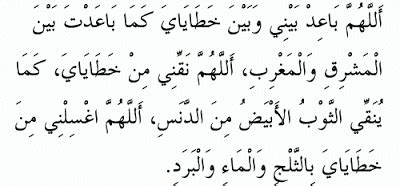 أَللَّهُمَّ بَاعِدْ بَيْنِي وَبَيْنَ خَطَايَايَ كَمَا بَاعَدْتَ بَيْنَ
الْمَشْرِقِ وَالْمَغْرِبِ، أَللَّهُمَّ نَقِّنِي مِنْ خَطَايَايَ، كَمَا
يُنَقِّي الثَّوْبُ الأَبْيَضُ مِنَ الدَّنَسِ، أَللَّهُمَّ اغْسِلْنِي مِنَ
خَطَايَايَ بِالثَّلْجِ وَالْمَاءِ وَالْبَرَدِ.